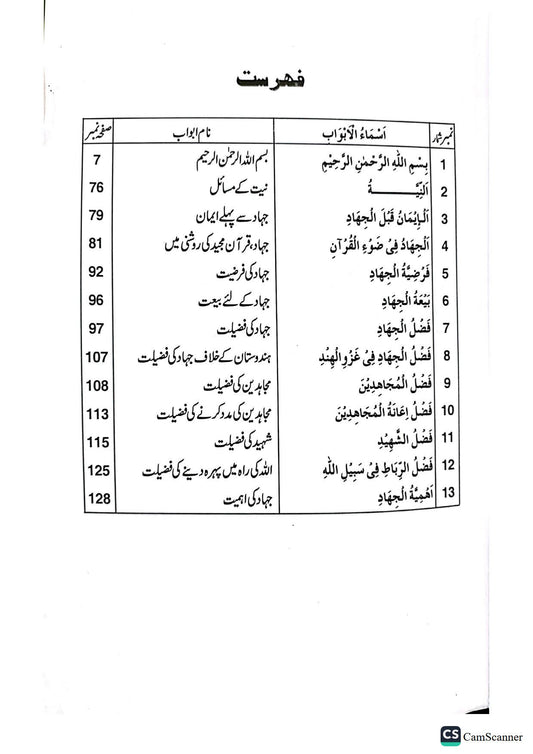 فہرست
نمبر شمار اَسْمَاءُ الْاَبْوَابِ نام ابواب صفحہ نمبر
1 بِسْمِ اللّٰهِ الرَّحْمٰنِ الرَّحِيْمِ بسم اللہ الرحمٰن الرحیم 7
2 اَلنِّيَّــــــةُ نیت کے مسائل 76
3 اَلْاِيْمَانُ قَبْلَ الْجِهَادِ جہاد سے پہلے ایمان 79
4 اَلْجِهَادُ فِىْ ضَوْءِ الْقُرْآنِ جہاد، قرآن مجید کی روشنی میں 81
5 فَرْضِيَّةُ الْجِهَادِ جہاد کی فرضیت 92
6 بَيْعَةُ الْجِهَادِ جہاد کے لئے بیعت 96
7 فَضْلُ الْجِهَادِ جہاد کی فضیلت 97
8 فَضْلُ الْجِهَادِ فِىْ غَزْوِ الْهِنْدِ ہندوستان کے خلاف جہاد کی فضیلت 107
9 فَضْلُ الْمُجَاهِدِيْنَ مجاہدین کی فضیلت 108
10 فَضْلُ اِعَانَةِ الْمُجَاهِدِيْنَ مجاہدین کی مدد کرنے کی فضیلت 113
11 فَضْلُ الشَّهِيْدِ شہید کی فضیلت 115
12 فَضْلُ الرِّبَاطِ فِىْ سَبِيْلِ اللّٰهِ اللہ کی راہ میں پہرہ دینے کی فضیلت 125
13 اَهَمِّيَّةُ الْجِهَادِ جہاد کی اہمیت 128
CS CamScanner